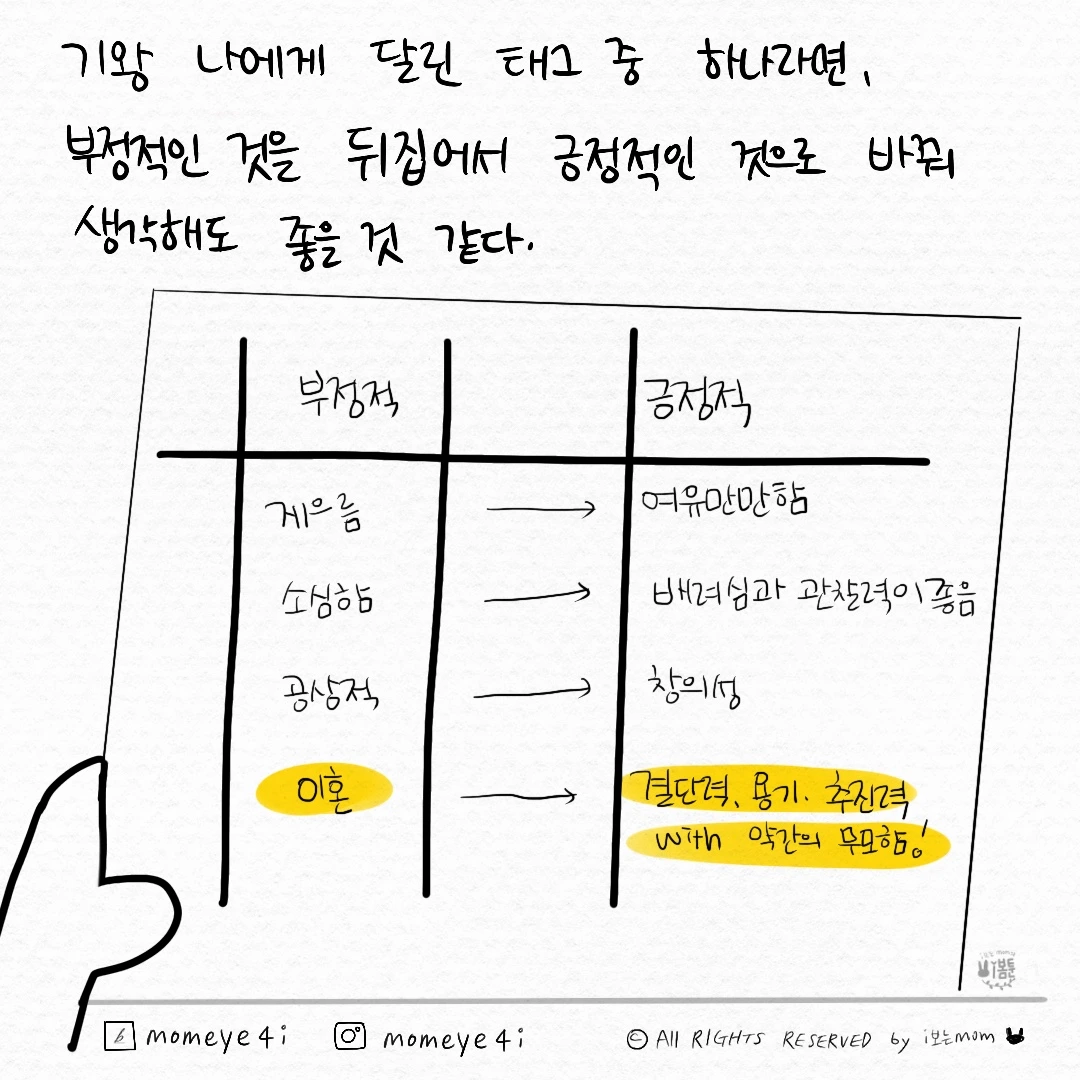 기왕 나에게 달린 태그 중 하나라면,
부정적인 것을 뒤집어서 긍정적인 것으로 바꿔
생각해도 좋을 것 같다.
부정적 긍정적
게으름 → 여유만만함
소심함 → 배려심과 관찰력이 좋음
공상적 → 창의성
이혼 → 결단력, 용기. 추진력
with 약간의 무모함!
momeye4i momeye4i © All RIGHTS RESERVED by i보는mom